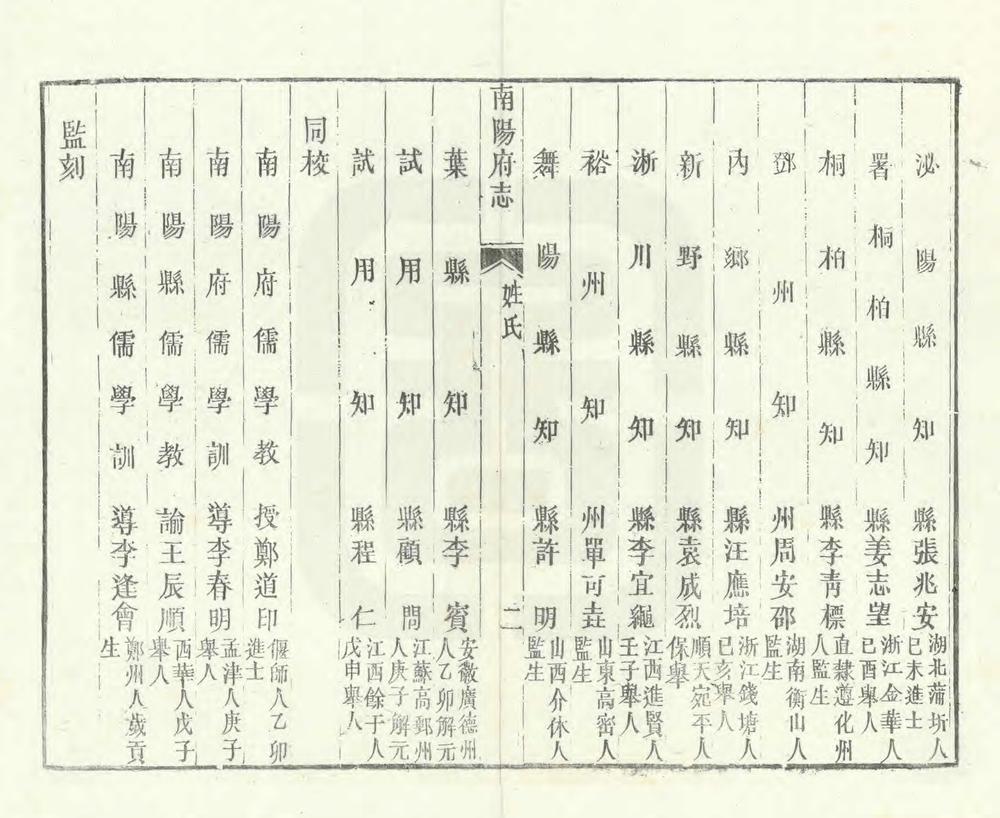 泌陽縣知縣張兆安湖北蒲圻人己未進士
署桐柏縣知縣姜志望浙江金華人己酉舉人
桐柏縣知縣李青標直隸遵化州人監生
鄧州知州周安邵湖南衡山人監生
內鄉縣知縣汪應培浙江錢塘人己亥舉人
新野縣知縣袁成烈順天宛平人保舉
淅川縣知縣李宜繩江西進賢人壬子舉人
裕州知州單可垚山東高密人監生
舞陽縣知縣許明山西介休人監生
南陽府志
姓氏
二
葉縣知縣李賓安徽廣德州人乙卯解元
試用知縣顧問江蘇高郵州人庚子解元
試用知縣程仁江西餘于人戊申舉人
同校
南陽府儒學教授鄭道印偃師人乙卯進士
南陽府儒學訓導李春明孟津人庚子舉人
南陽縣儒學教諭王辰順西華人戊子舉人
南陽縣儒學訓導李逢會鄭州人歲貢生
監刻